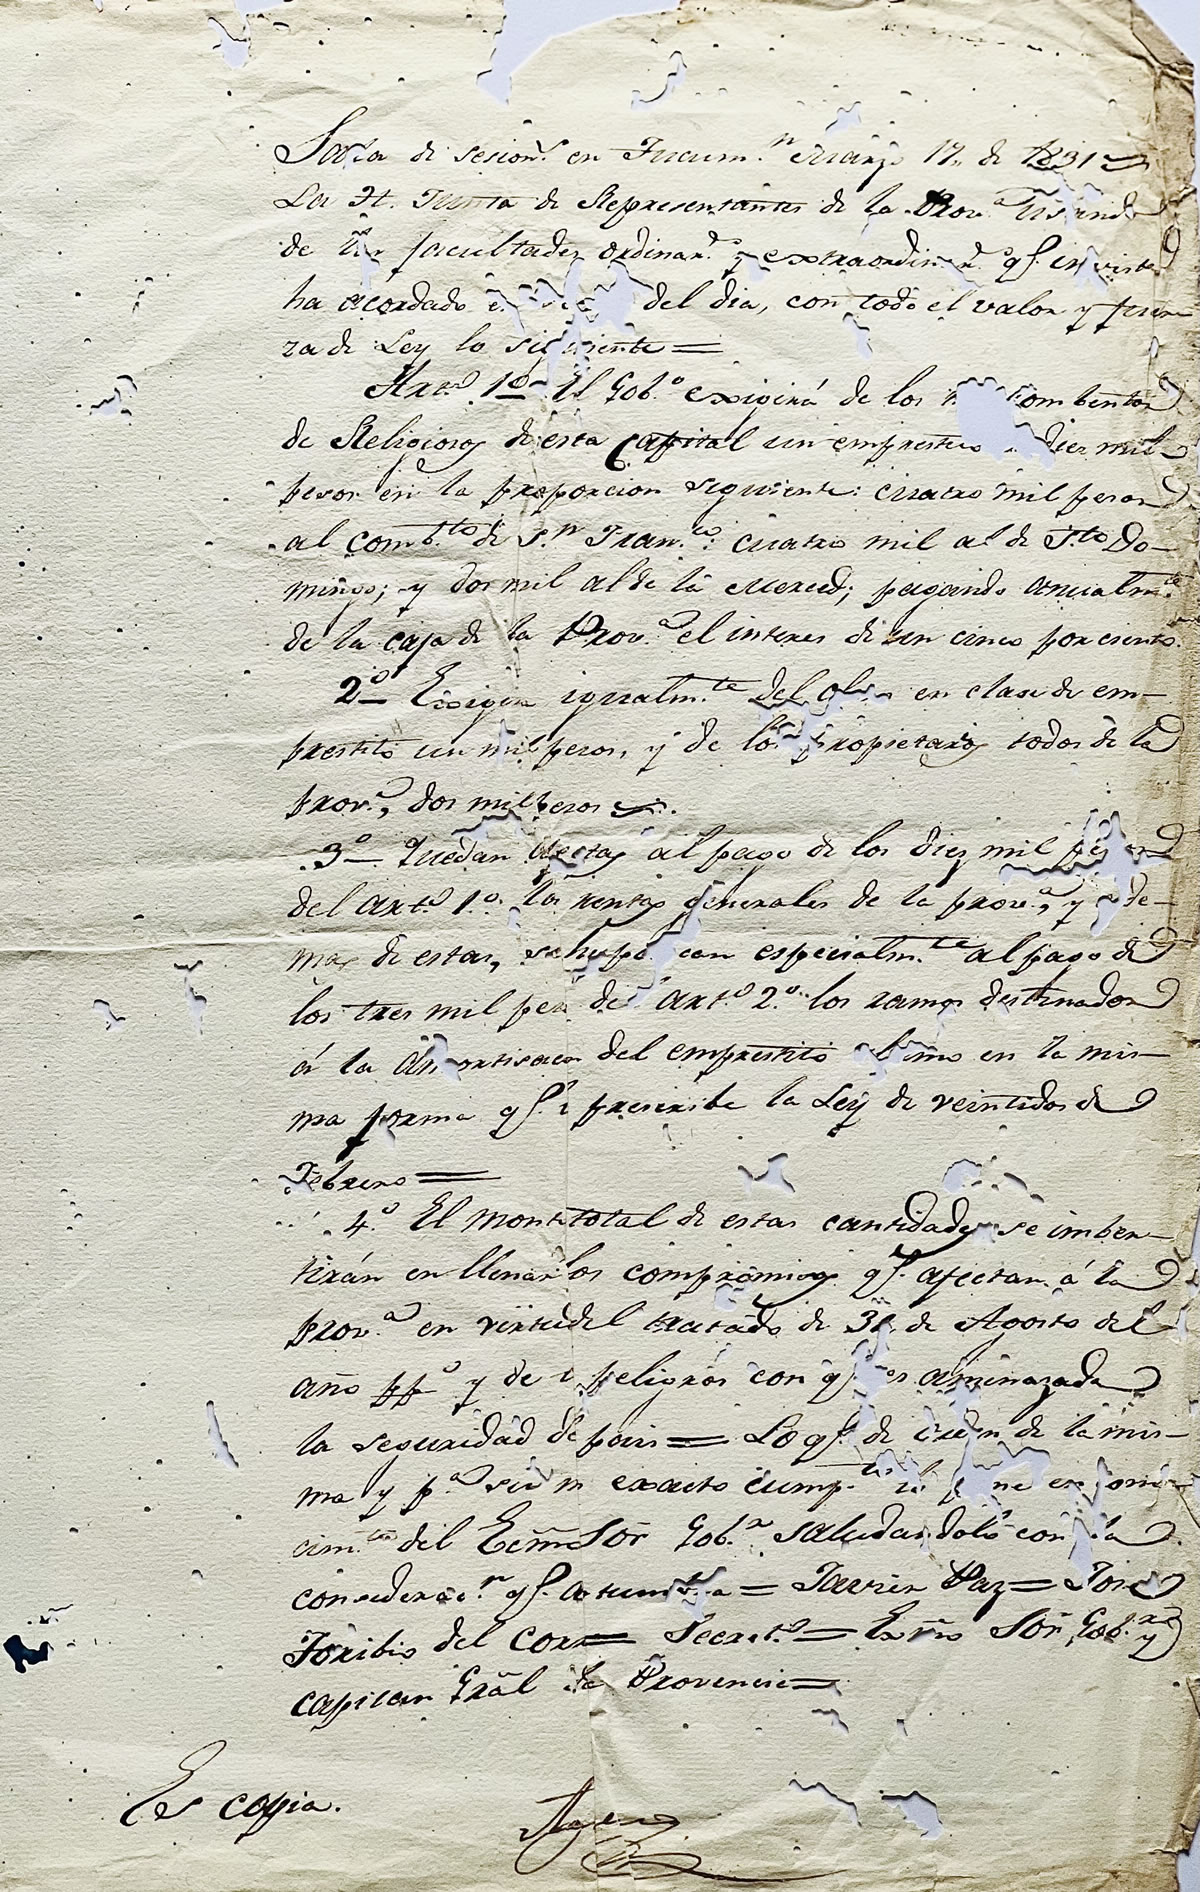 Sala de sesion.s en Tucum.n Marzo 17,, de 1831
La H. Junta de Representantes de la Prov.a usando
de las facultades ordinar.s y extraordin.r.s q.e inviste
ha acordado en del dia, con todo el valor y fuer-
za de Ley lo siguiente =
Art.o 1o El Gob.o exigirá de los Combentos
de Religiosos de esta Capital un emprestito diez mil
pesos en la proporcion siguiente: cuatro mil pesos
al comb.to de S.n Fran.co: cuatro mil al de S.to Do-
mingo; y dos mil al de la Merced; pagando anualm.te
de la caja de la Prov.a el interes de un cinco por ciento.
2o Exigirá igualm.te del en clase de em-
prestito un mil pesos, y de los propietarios todos de la
prov.a, dos mil pesos.
3o Quedan afectas al pago de los diez mil pesos
del art.o 1.o las rentas generales de la prov.a, y ade-
mas de estas, se hipotecan especialm.te al pago de
los tres mil pesos del art.o 2.o los ramos destinados
á la amortisacion del emprestito ultimo en la mis-
ma forma q.e prescribe la Ley de veintidos de
Febrero =
4.o El monto total de estas cantidades se imber-
tirán en llenar los compromisos q.e afectan á la
prov.a en virtud del tratado de 31 de Agosto del
año pp.o y de peligros con q.e es aminazada
la seguridad del pais = Lo q.e de orden de la mis-
ma y p.a su exacto cump.to pone en conoci-
cim.to del Exmo Sor Gob.r saludandolo con la
consideraci.n q.e acostumbra = Javier Paz = Jose
Toribio del Corro = Secret.o = Exmo Sor Gob.r y
capitan Gral de la Provincia =
Es copia.